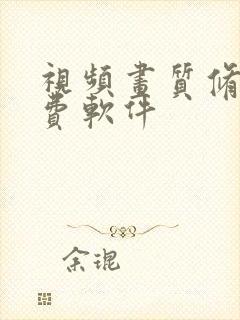 視頻畫質修
費軟件
余琨